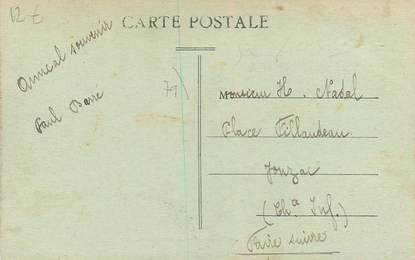 12 €
CARTE POSTALE
Amical souvenir
Paul Barré
71)
Monsieur H. Nadal
Place Fillaudeau
Jonzac
(Ch.ª Inf.)
Faire suivre